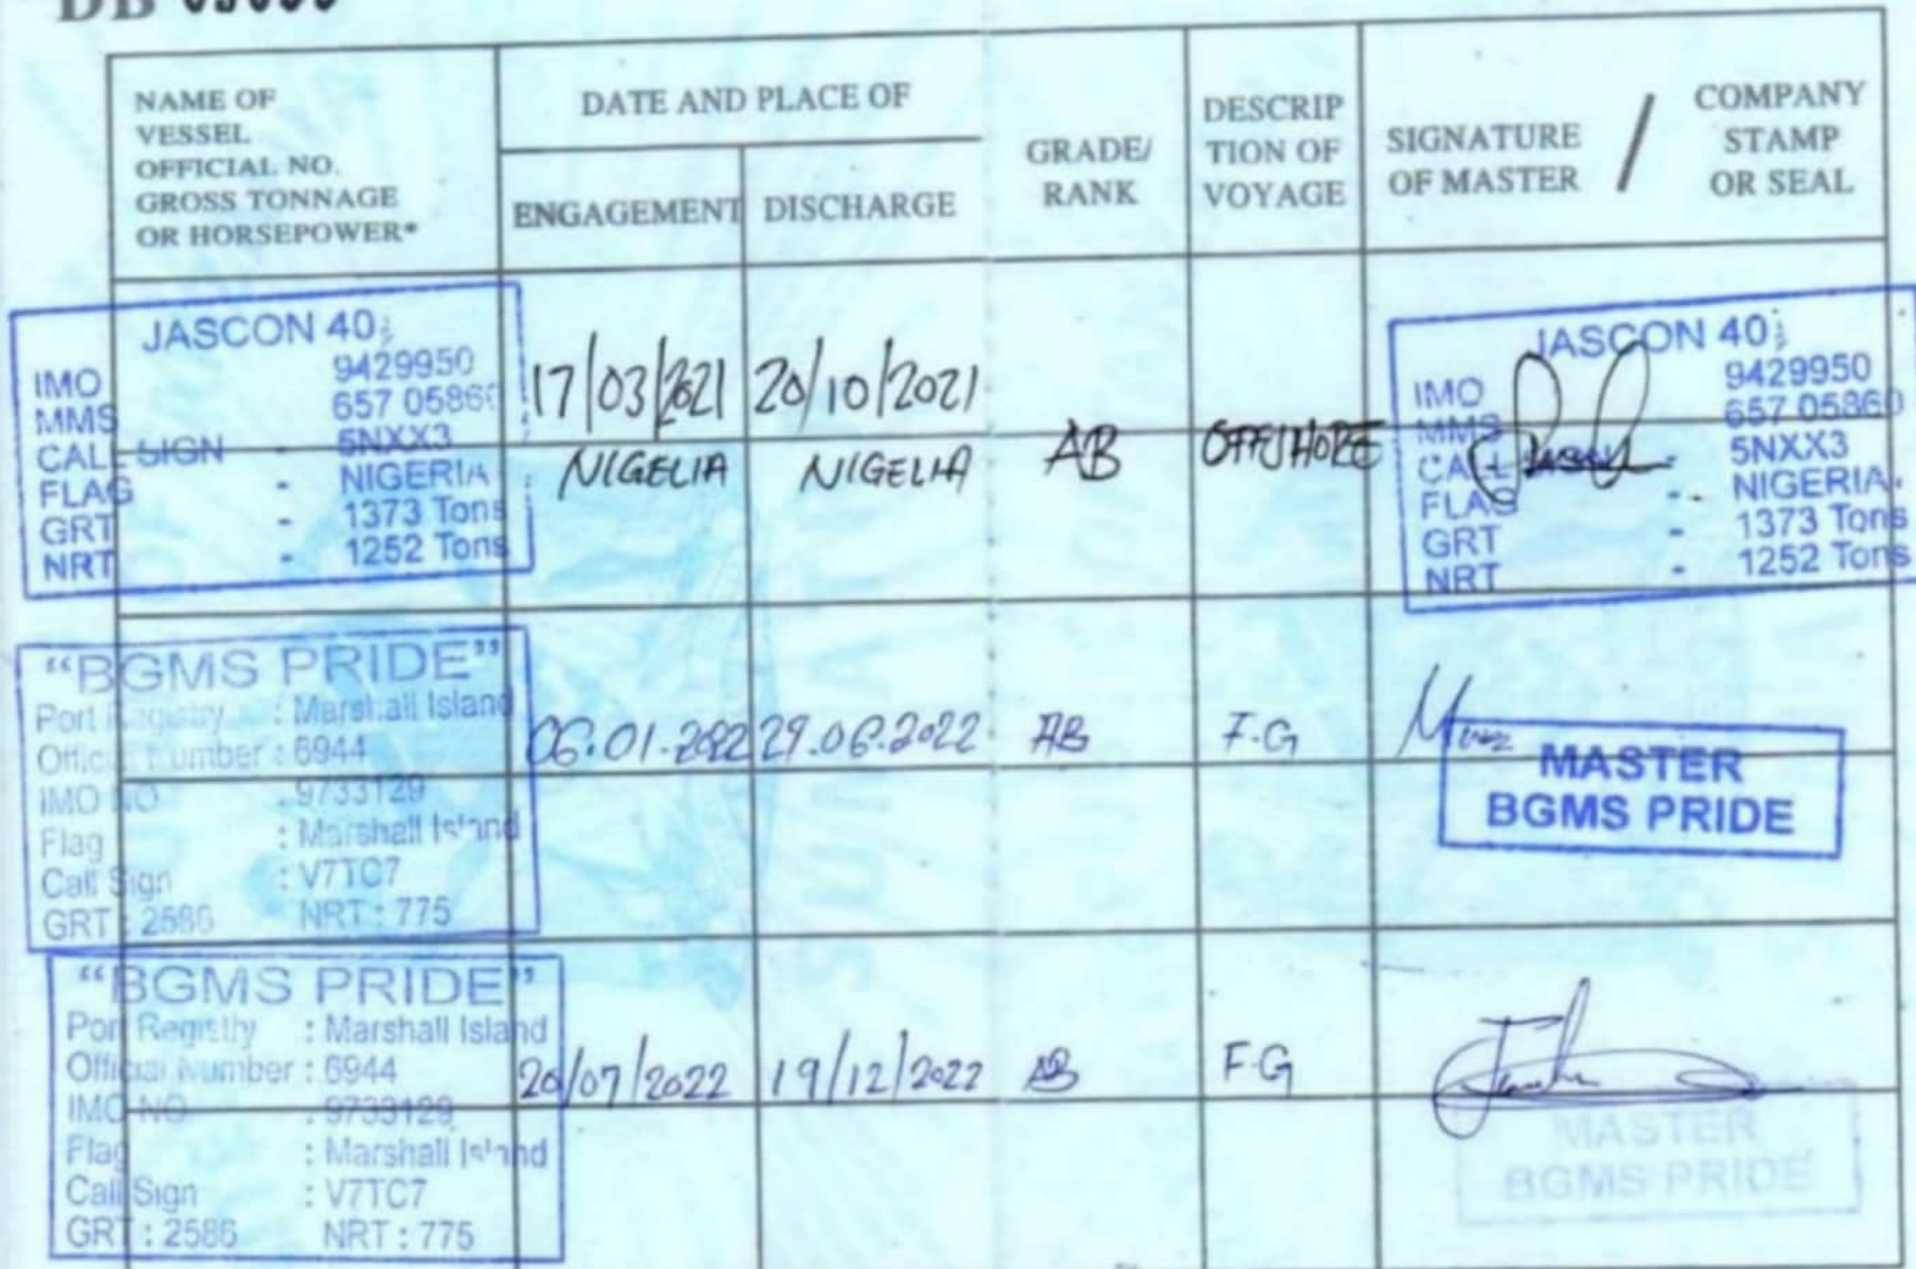 DB
NAME OF
VESSEL
OFFICIAL NO.
GROSS TONNAGE
OR HORSEPOWER*
DATE AND PLACE OF
ENGAGEMENT
DISCHARGE
GRADE/
RANK
DESCRIP
TION OF
VOYAGE
SIGNATURE
OF MASTER
/
COMPANY
STAMP
OR SEAL
JASCON 40
IMO 9429950
MMS 657 05860
CALL SIGN - 5NXX3
FLAG - NIGERIA
GRT - 1373 Tons
NRT - 1252 Tons
17/03/2021
NIGELIA
20/10/2021
NIGELIA
AB
OFFSHORE
JASCON 40
IMO 9429950
MMS 657 05860
CALL - 5NXX3
FLAG - NIGERIA
GRT - 1373 Tons
NRT - 1252 Tons
"BGMS PRIDE"
Port Registry : Marshall Island
Official Number : 6944
IMO NO : 9733129
Flag : Marshall Island
Call Sign : V7TC7
GRT : 2586 NRT : 775
06.01.2022
29.06.2022
AB
F.G
MASTER
BGMS PRIDE
"BGMS PRIDE"
Port Registry : Marshall Island
Official Number : 6944
IMO NO : 9733129
Flag : Marshall Island
Call Sign : V7TC7
GRT : 2586 NRT : 775
20/07/2022
19/12/2022
AB
F.G
MASTER
BGMS PRIDE